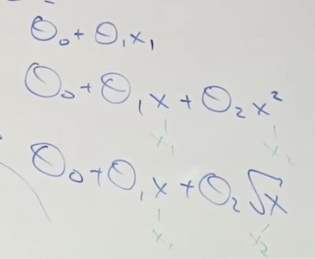 Θ₀ + Θ₁x₁
Θ₀ + Θ₁x + Θ₂x²
x₁ x₂
Θ₀ + Θ₁x + Θ₂√x
x₁ x₂